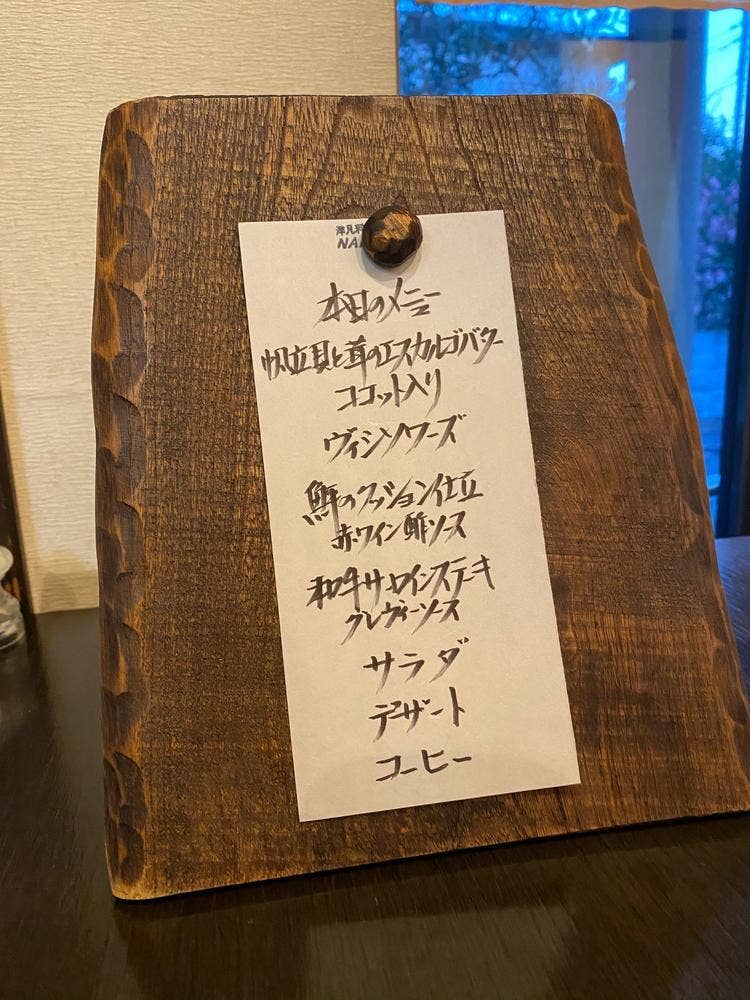 NA
本日のメニュー
帆立貝と茸のエスカルゴバター
ココット入り
ヴィシソワーズ
鮮のクッション仕立
赤ワイン酢ソース
和牛サーロインステーキ
グレヴィーソース
サラダ
デザート
コーヒー